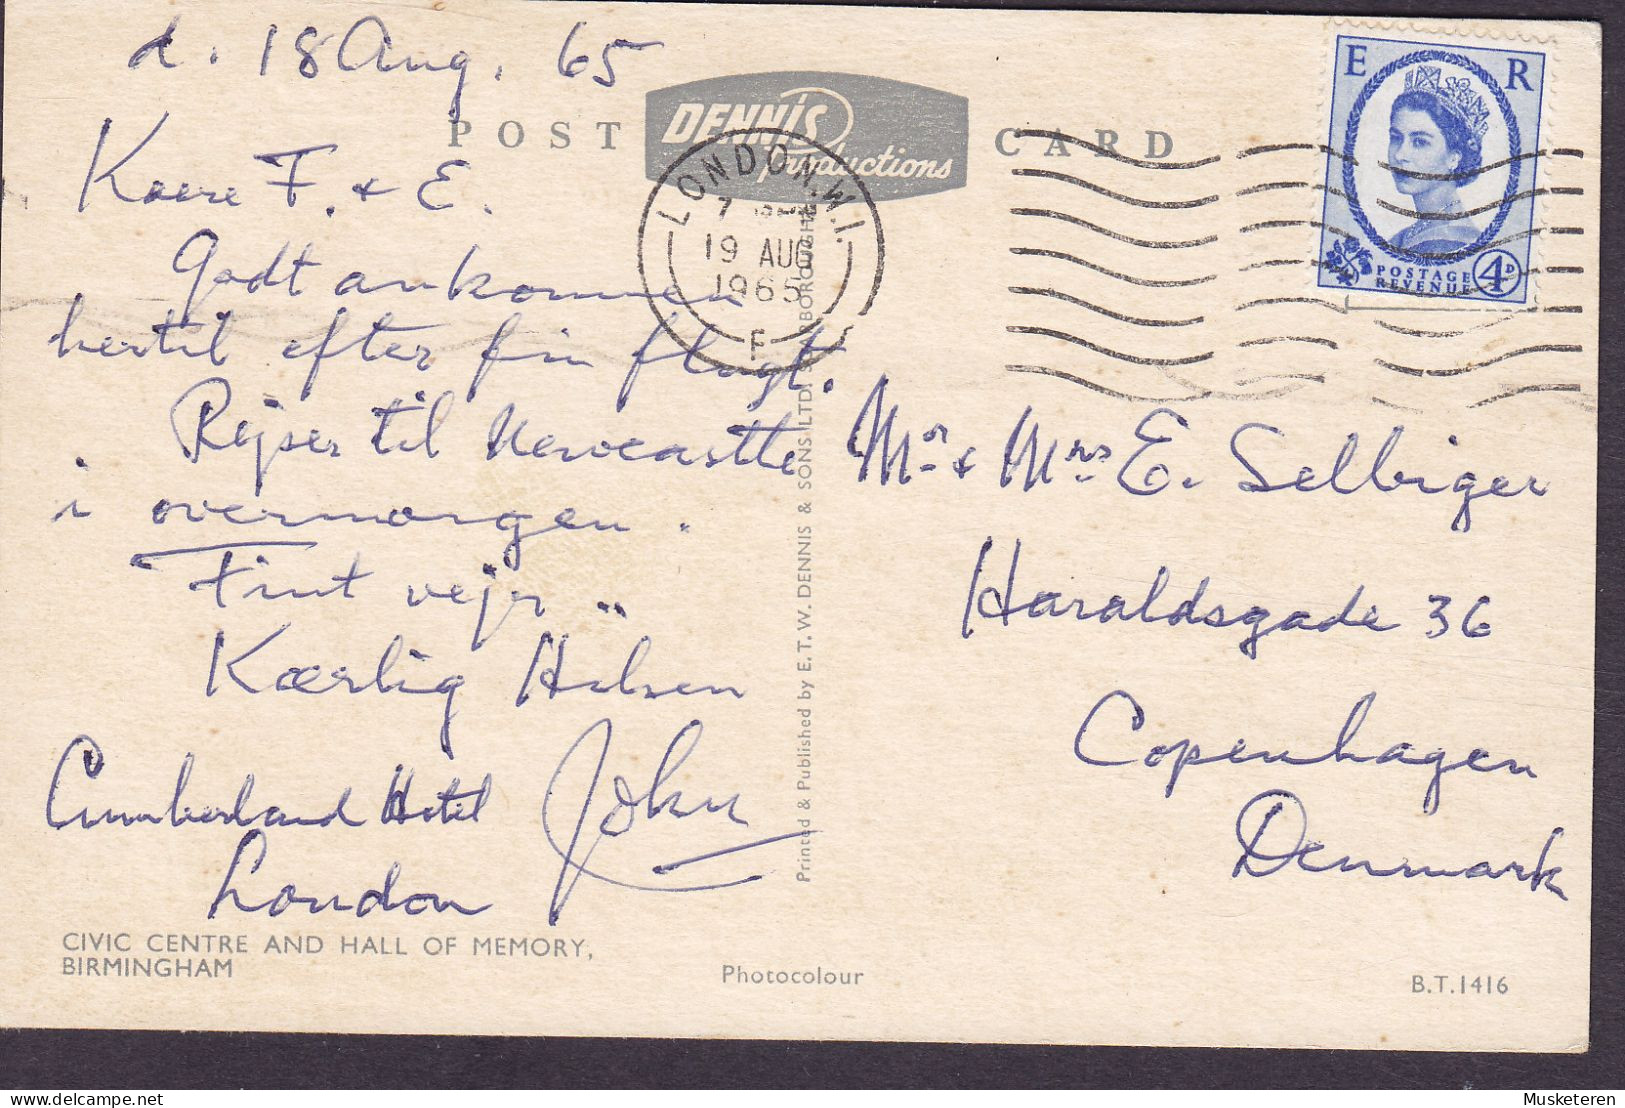 d. 18 Aug. 65
POST CARD
DENNIS
Productions
Kære F. + E.
Godt ankommen
hertil efter fin flugt.
Rejser til Newcastle
i overmorgen.
Fint vejr..
Kærlig Hilsen
John
Cumberland Hotel
London
CIVIC CENTRE AND HALL OF MEMORY,
BIRMINGHAM
Photocolour
Printed & Published by E. T. W. DENNIS & SONS LTD
LONDON. W.1.
19 AUG
1965
F
E R
POSTAGE
REVENUE
4D
Mr. + Mrs. E. Selbiger
Haraldsgade 36
Copenhagen
Denmark
B.T.1416
delcampe.net
Musketeren